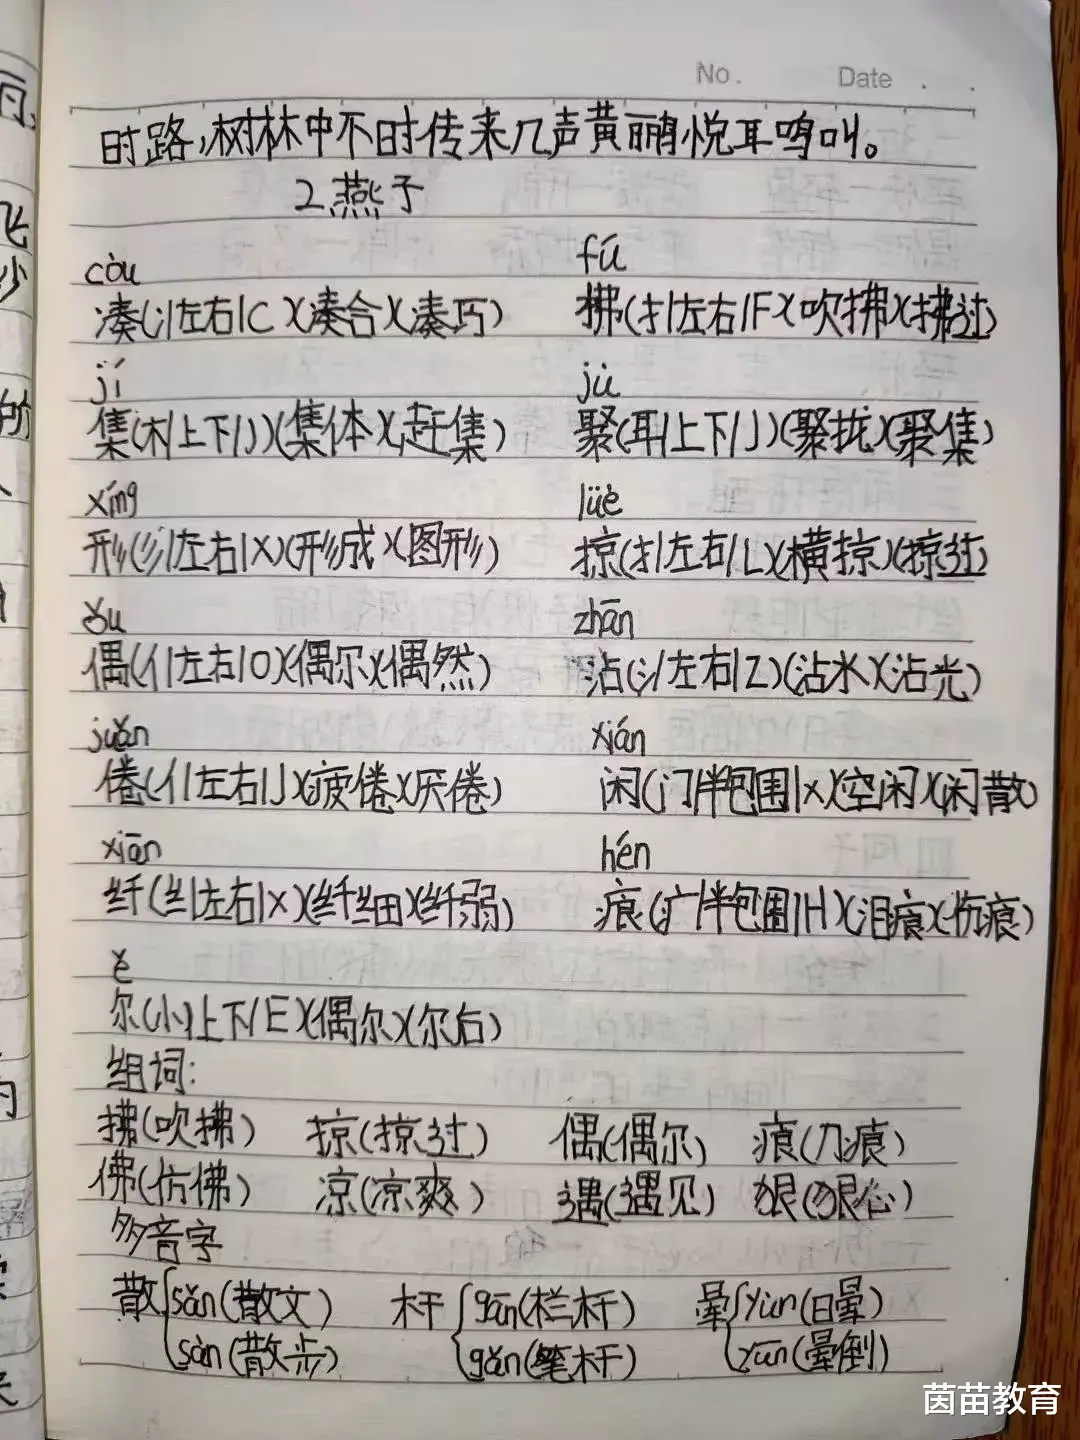 No. Date . .
时路,树林中不时传来几声黄鹂悦耳鸣叫。
2.燕子
còu fú
凑(冫|左右|C)(凑合)(凑巧) 拂(扌|左右|F)(吹拂)(拂过)
jí jù
集(木|上下|J)(集体)(赶集) 聚(耳|上下|J)(聚拢)(聚集)
xíng lüè
形(彡|左右|X)(形成)(图形) 掠(扌|左右|L)(横掠)(掠过)
ǒu zhān
偶(亻|左右|O)(偶尔)(偶然) 沾(氵|左右|Z)(沾水)(沾光)
juàn xián
倦(亻|左右|J)(疲倦)(厌倦) 闲(门|半包围|X)(空闲)(闲散)
xiān hén
纤(纟|左右|X)(纤细)(纤弱) 痕(疒|半包围|H)(泪痕)(伤痕)
ě
尔(小|上下|E)(偶尔)(尔后)
组词:
拂(吹拂) 掠(掠过) 偶(偶尔) 痕(刀痕)
佛(仿佛) 凉(凉爽) 遇(遇见) 狠(狠心)
多音字
散 sǎn(散文) 杆 gān(栏杆) 晕 yùn(日晕)
sàn(散步) gǎn(笔杆) yūn(晕倒)
茵苗教育